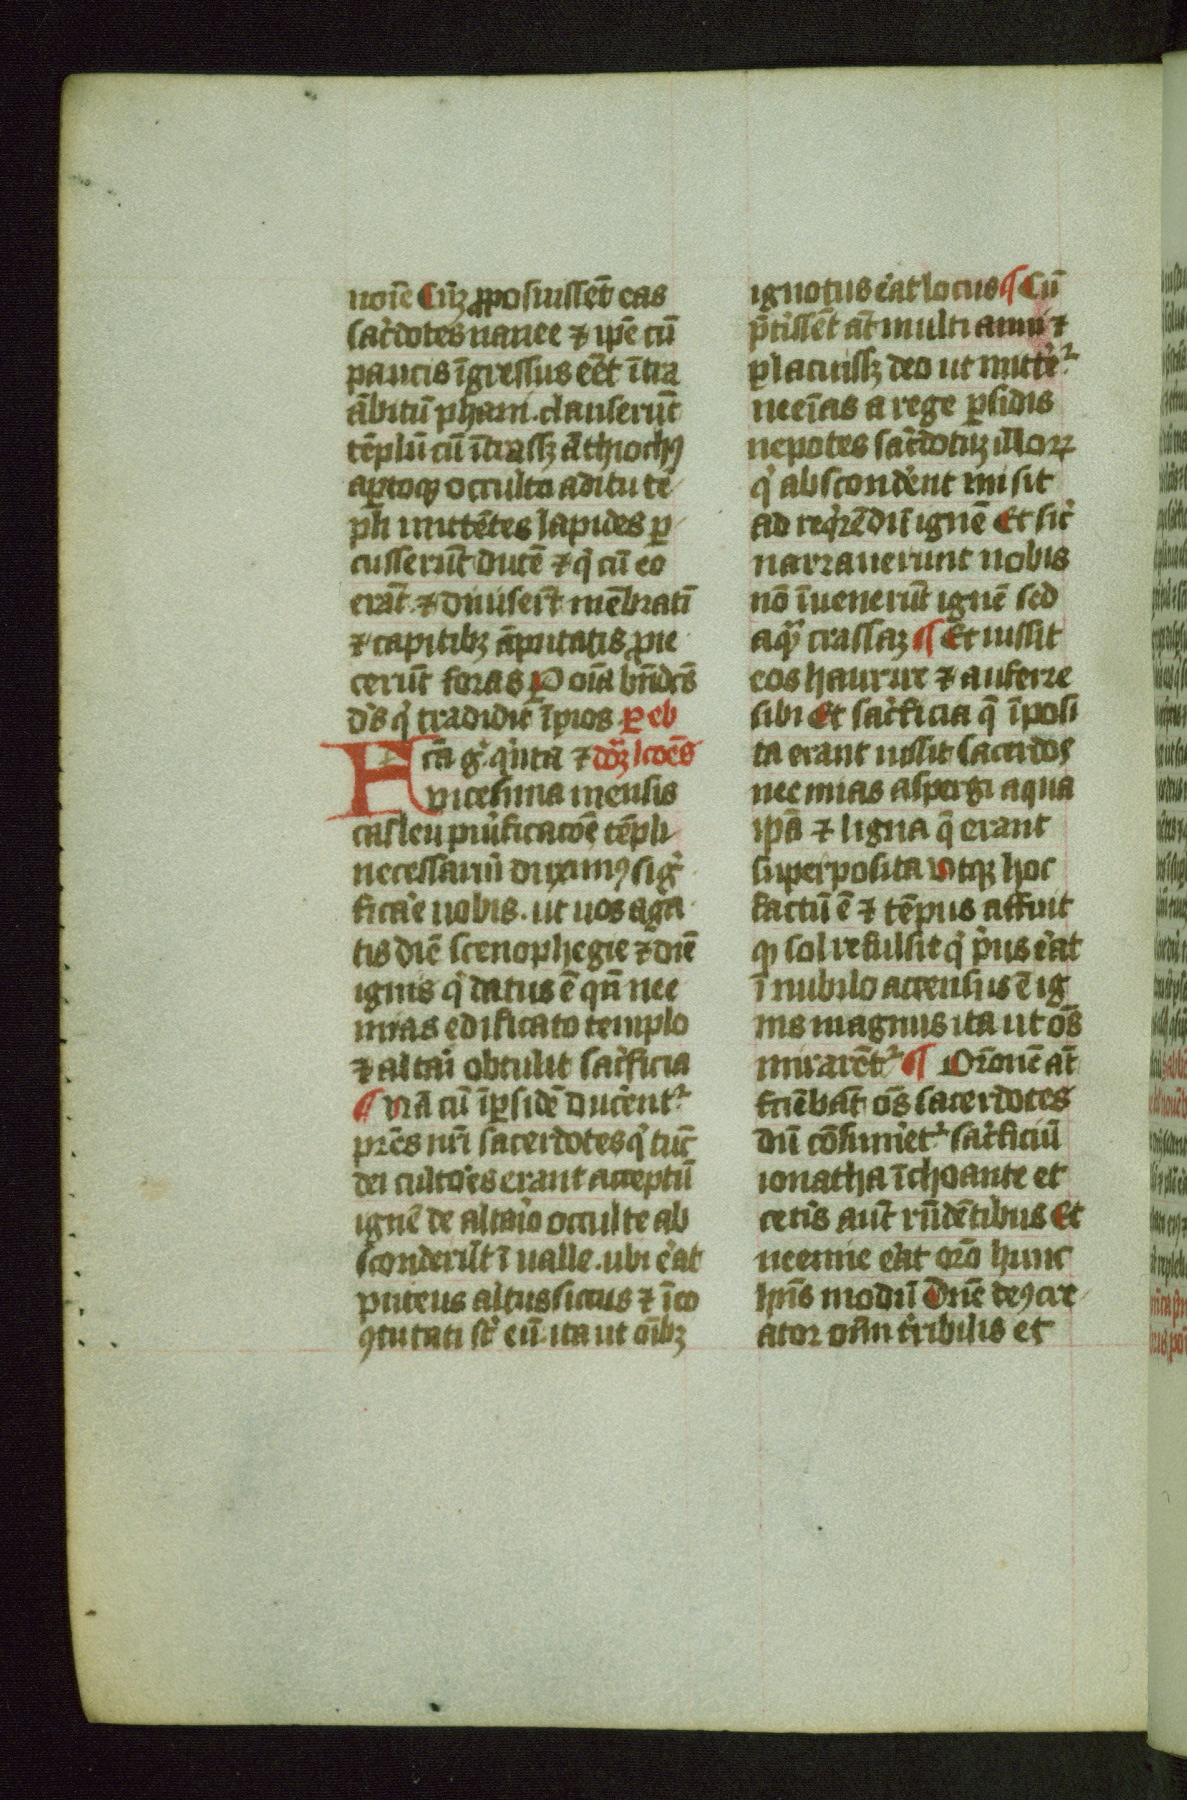 noīe Cūqꝫ ꝓposuissēt eas
sac̄dotes nanee ⁊ ip̄e cū
paucis īgressus eēt ītra
ābitū phani. clauserūt
tēplū cū ītrassꝫ āthiochꝯ
aꝑtoqꝫ occulto aditu tē
pli mittētes lapides ꝑ
cusserūt ducē ⁊ qͥ cū eo
erāt. ⁊ diuiserūt mēbratī
⁊ capitibꝫ āputatis ꝓie
cerūt foras P oīa bn̄dc̄s
dꝰs qͥ tradidit īpios ꝑ eb
Fc̄a gͥ qͥnta ⁊ doꝫ lcōes
vicesima mensis
casleu pͥuficacōē tēpli
necessariū duximꝯ sig
ficaͬe uobis. ut uos aga
tis diē scenophegie ⁊ diē
ignis qͥ datus ē qn̄ nee
mias edificato templo
⁊ altaͥ obtulit sac̄ficia
¶ Nā cū ī ꝑsidē ducerent᷑
pr̄es nr̄i sacerdotes qͥ tūc
dei cultoͬes erant acceptū
ignē de altaͥo occulte ab
sconderūt ī ualle. ubi eͬat
puteus altus siccus ⁊ ī eo
ꝯtutati st̄ eū. ita ut oībꝫ
ignotus eͬat locus ¶ Cū
p̄tͥissēt āt multi anni ⁊
placuissꝫ deo ut mitteͬ᷑
neeīas a rege ꝑsidis
nepotes sac̄dotuꝫ illoꝝ
qͥ absconderͬent misit
ad reqͥrēdū ignē Et sicͬ
narrauerunt nobis
nō īuenerūt ignē sed
aquā crassaꝫ ¶ Et iussit
eos haurire ⁊ auferre
sibi Et sac̄ficia q̄ īposi
ta erant iussit sacerdos
neemias aspergi aqua
ipā ⁊ ligna q̄ erant
superposita Vtqꝫ hoc
factū ē ⁊ tēpus affuit
qͦ sol refulsit qͥ pͥus eͬat
ī nubilo accensus ē ig
nis magnus ita ut oēs
miraren̄t᷑ ¶ Or̄onē āt
faciēbāt oēs sacerdotes
dū cōsumet᷑ sac̄ficiū
ionatha īchoante et
ceteͬis aūt rn̄dētibus Et
neemie eͬat or̄o hunc
hn̄s modū Dn̄e deꝯ cre
ator om̄īn tͬribilis et